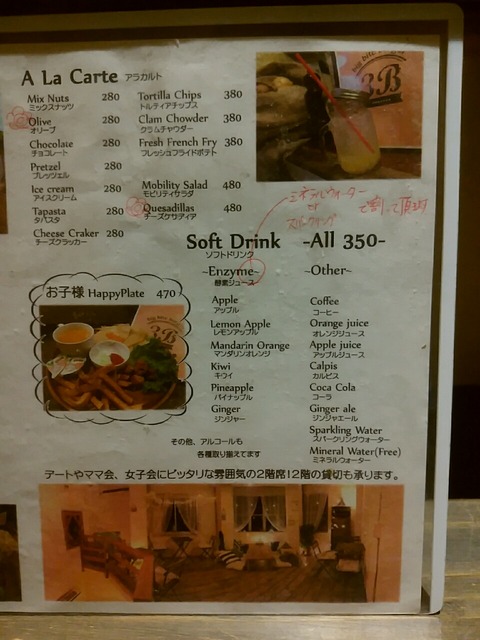 A La Carte アラカルト
Mix Nuts 280
ミックスナッツ
Olive 280
オリーブ
Chocolate 280
チョコレート
Pretzel 280
プレッツェル
Ice cream 280
アイスクリーム
Tapasta 280
タパスタ
Cheese Craker 280
チーズクラッカー
Tortilla Chips 380
トルティアチップス
Clam Chowder 380
クラムチャウダー
Fresh French Fry 380
フレッシュフライドポテト
Mobility Salad 480
モビリティサラダ
Quesadillas 480
チーズケサディア
3B
ミネラルウォーター
で割って頂けます
Soft Drink -All 350-
ソフトドリンク
~Enzyme~
酵素ジュース
Apple
アップル
Lemon Apple
レモンアップル
Mandarin Orange
マンダリンオレンジ
Kiwi
キウイ
Pineapple
パイナップル
Ginger
ジンジャー
~Other~
Coffee
コーヒー
Orange juice
オレンジジュース
Apple juice
アップルジュース
Calpis
カルピス
Coca Cola
コーラ
Ginger ale
ジンジャエール
Sparkling Water
スパークリングウォーター
Mineral Water(Free)
ミネラルウォーター
お子様 HappyPlate 470
3B
その他、アルコールも
各種取り揃えてます
デートやママ会、女子会にピッタリな雰囲気の2階席!2階の貸切も承ります。